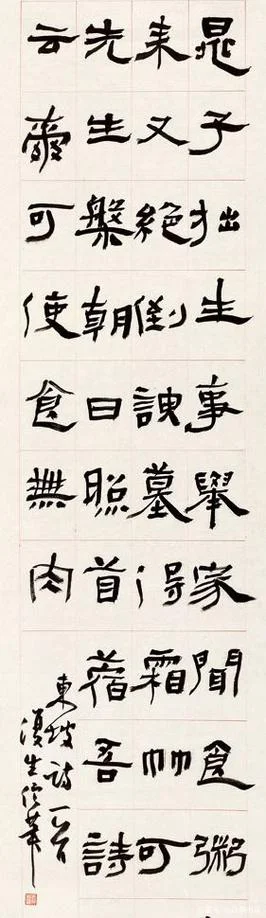 晁子拙生事舉家聞食粥
来又絶倒諛墓得霜竹可
先生槃朝日照首蓿吾詩
云可使食無肉
東坡詩一首
生